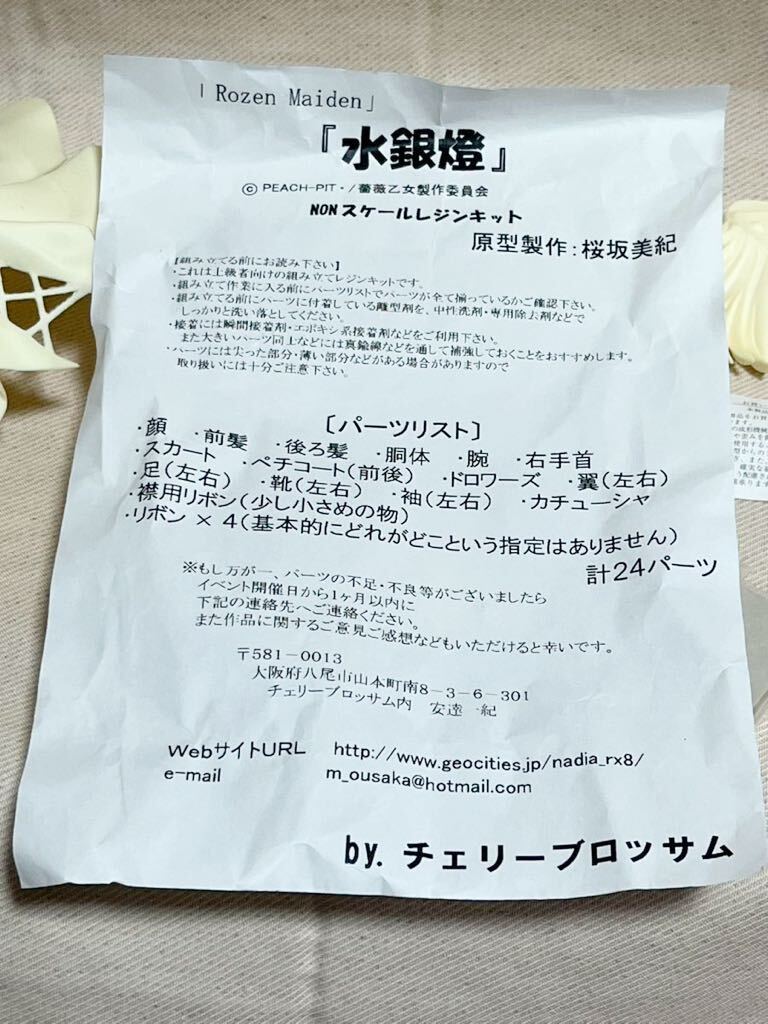 「Rozen Maiden」
『水銀燈』
© PEACH-PIT・/薔薇乙女製作委員会
NONスケールレジンキット
原型製作：桜坂美紀
【組み立てる前にお読み下さい】
・これは上級者向けの組み立てレジンキットです。
・組み立て作業に入る前にパーツリストでパーツが全て揃っているかご確認下さい。
・組み立てる前にパーツに付着している離型剤を、中性洗剤・専用除去剤などで
しっかりと洗い落としてください。
・接着には瞬間接着剤・エポキシ系接着剤などをご利用下さい。
また大きいパーツ同士などには真鍮線などを通して補強しておくことをおすすめします。
・パーツには尖った部分・薄い部分などがある場合がありますので
取り扱いには十分ご注意下さい。
〔パーツリスト〕
・顔　・前髪　・後ろ髪　・胴体　・腕　・右手首
・スカート　・ペチコート(前後)　・ドロワーズ　・翼(左右)
・足(左右)　・靴(左右)　・袖(左右)　・カチューシャ
・襟用リボン(少し小さめの物)
・リボン × 4(基本的にどれがどこという指定はありません)
計24パーツ
※もし万が一、パーツの不足・不良等がございましたら
イベント開催日から1ヶ月以内に
下記の連絡先へご連絡ください。
また作品に関するご意見ご感想などもいただけると幸いです。
〒581-0013
大阪府八尾市山本町南8-3-6-301
チェリーブロッサム内　安達 一紀
WebサイトURL　http://www.geocities.jp/nadia_rx8/
e-mail　m_ousaka@hotmail.com
by. チェリーブロッサム